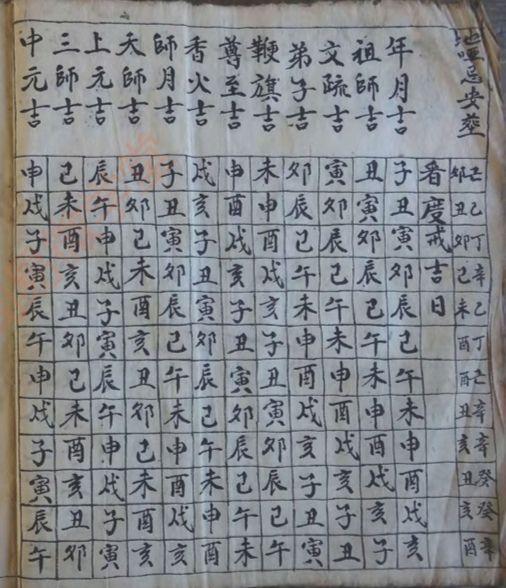 地哑忌安葬
己丑 丁卯 辛己 己未 丁酉 己酉 辛丑 辛亥 癸丑 癸亥 辛酉
看度戒吉日
年月吉 子丑寅卯辰己午未申酉戌亥
祖師吉 丑寅卯辰己午未申酉戌亥子
文疏吉 寅卯辰己午未申酉戌亥子丑
弟子吉 卯辰己午未申酉戌亥子丑寅
鞭旗吉 未申酉戌亥子丑寅卯辰己午
尊至吉 申酉戌亥子丑寅卯辰己午未
香火吉 戌亥子丑寅卯辰己午未申酉
師月吉 子丑寅卯辰己午未申酉戌亥
天師吉 丑卯己未酉亥丑卯己未酉亥
上元吉 辰午申戌子寅辰午申戌子寅
三師吉 己未酉亥丑卯己未酉亥丑卯
中元吉 申戌子寅辰午申戌子寅辰午